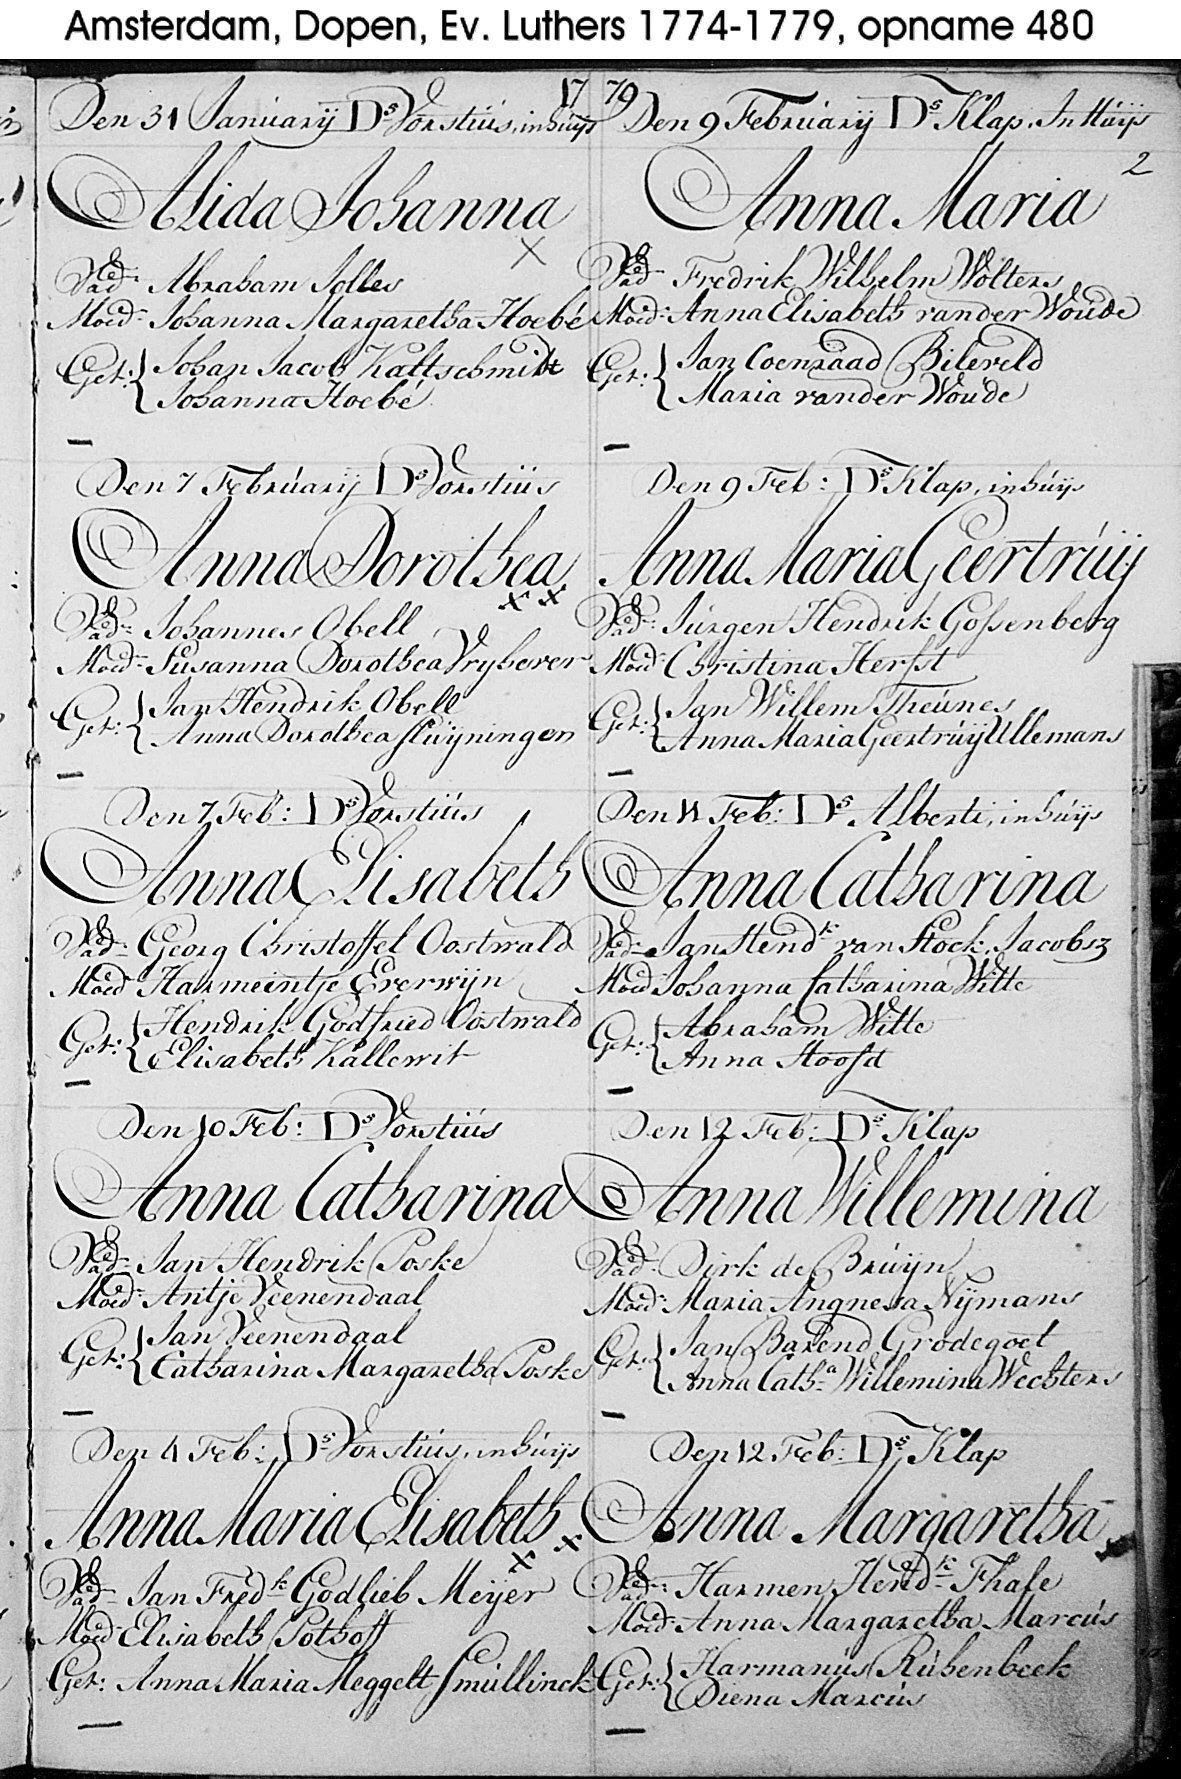 Amsterdam, Dopen, Ev. Luthers 1774-1779, opname 480
1779
2
Den 31 Januarij Ds Vorstius, in huijs
Alida Johanna
Vad: Abraham Jolles
Moed: Johanna Margaretha Hoebé
Get: Johan Jacob Kaltschmidt
Johanna Hoebé
Den 7 Februarij Ds Vorstius
Anna Dorothea
Vad: Johannes Obell
Moed: Susanna Dorothea Vryberer
Get: Jan Hendrik Obell
Anna Dorothea Sluijningen
Den 7 Feb: Ds Vorstius
Anna Elisabeth
Vad: Georg Christoffel Oostwald
Moed Harmeintje Everwijn
Get: Hendrik Godfried Oostwald
Elisabeth Kallewit
Den 10 Feb: Ds Vorstius
Anna Catharina
Vad: Jan Hendrik Poske
Moed: Antje Veenendaal
Get: Jan Veenendaal
Catharina Margaretha Poske
Den 4 Feb: Ds Vorstius, in huijs
Anna Maria Elisabeth
Vad: Jan Fredk Godlieb Meijer
Moed: Elisabeth Pothoff
Get: Anna Maria Meggelt Smullinck
Den 9 Februarij Ds Klap. In Huijs
Anna Maria
Vad: Fredrik Wilhelm Wolters
Moed: Anna Elisabeth vander Woude
Get: Jan Coenraad Bileveld
Maria vander Woude
Den 9 Feb: Ds Klap, in huijs
Anna Maria Geertruij
Vad: Jurgen Hendrik Gossenberg
Moed: Christina Herfst
Get: Jan Willem Theunes
Anna Maria Geertruij Ullemans
Den 11 Feb: Ds Alberti, in huijs
Anna Catharina
Vad: Jan Hendk van Stock, Jacobsz
Moed Johanna Catharina Witte
Get: Abraham Witte
Anna Hoofd
Den 12 Feb: Ds Klap
Anna Willemina
Vad: Dirk de Bruijn
Moed: Maria Angnesa Nijmans
Get: Jan Barend Grodegoet
Anna Catha Willemina Wechters
Den 12 Feb: Ds Klap
Anna Margaretha
Vad: Harmen Hendk Fhale
Moed: Anna Margaretha Marcus
Get: Harmanus Rubenbeek
Diena Marcus